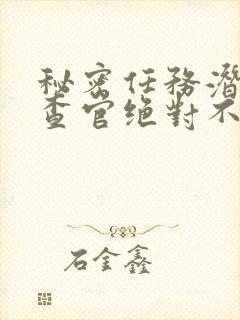 秘密任務潛
查官絕對不
石金鑫